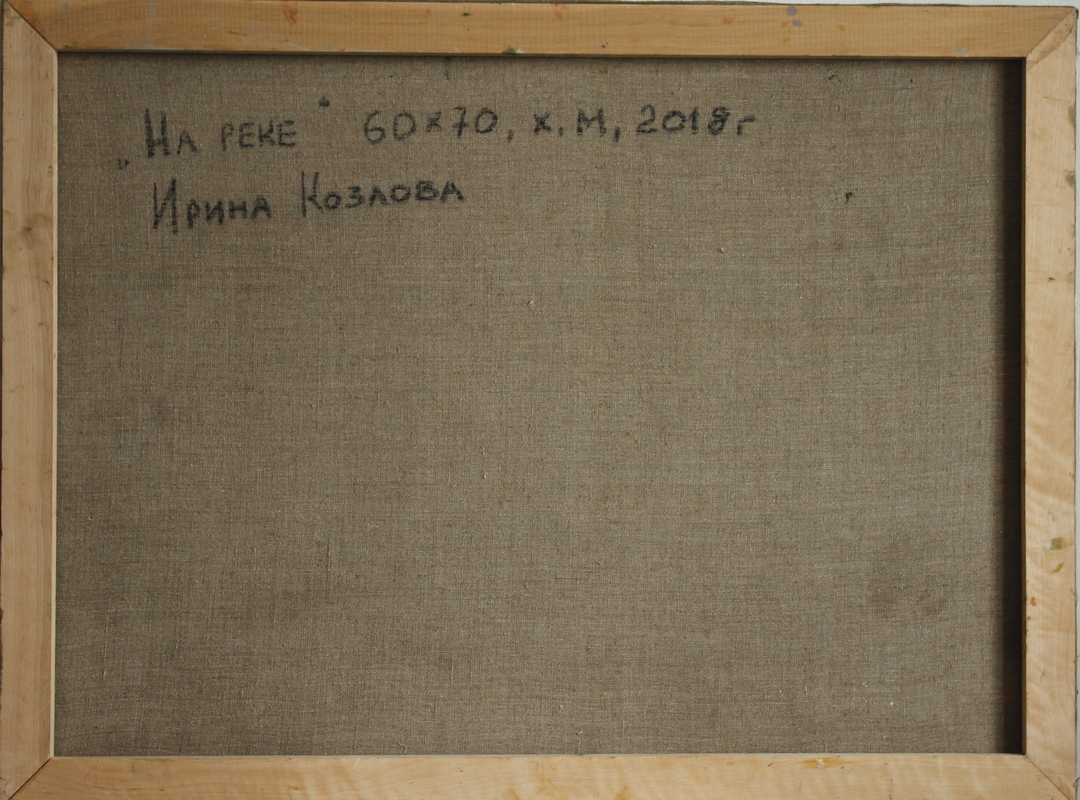 „На реке" 60×70, х.м, 2018г
Ирина Козлова